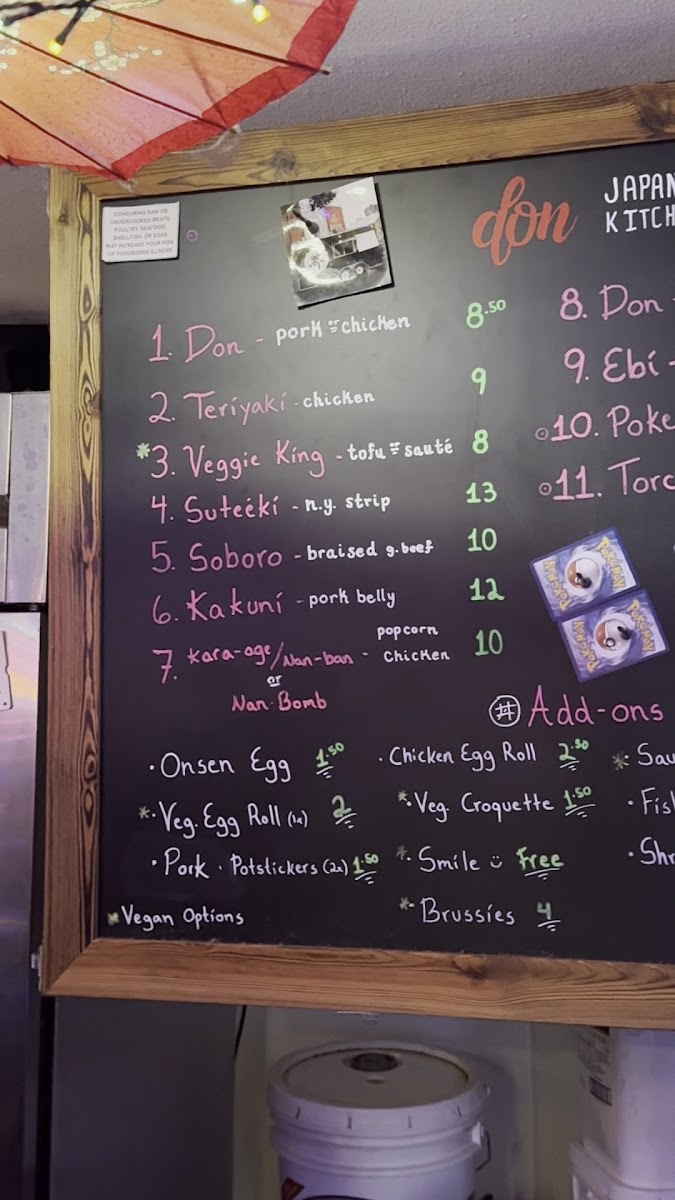 CONSUMING RAW OR
UNDERCOOKED MEATS
POULTRY, SEAFOOD,
SHELLFISH, OR EGGS
MAY INCREASE YOUR RISK
OF FOODBORNE ILLNESS
don
JAPAN
KITCH
1. Don - pork or chicken 8.50
2. Teriyaki - chicken 9
*3. Veggie King - tofu or sauté 8
4. Suteeki - n.y. strip 13
5. Soboro - braised g.beef 10
6. Kakuni - pork belly 12
7. Kara-age/Nan-ban - popcorn chicken 10
or
Nan-Bomb
8. Don
9. Ebi -
10. Poke
11. Torc
POKéMON
POKéMON
POKéMON
POKéMON
# Add-ons
· Onsen Egg 1.50
· Chicken Egg Roll 2.50
* Sau
*· Veg. Egg Roll (1x) 2
*· Veg. Croquette 1.50
· Fis
· Pork · Potstickers (2x) 1.50
*· Smile Free
· Shr
* Vegan Options
*· Brussies 4